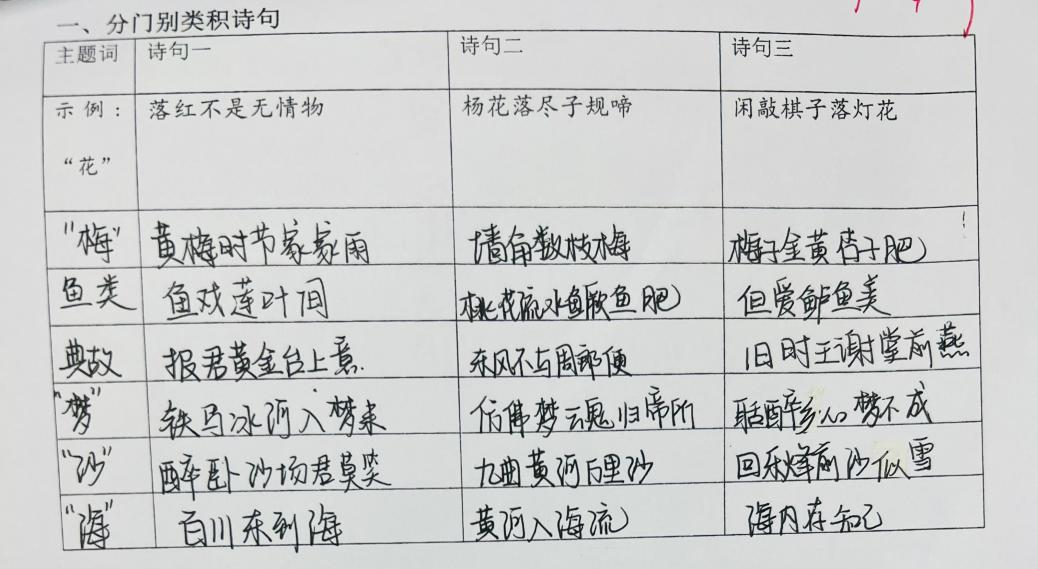 一、分门别类积诗句
主题词 诗句一 诗句二 诗句三
示例： 落红不是无情物 杨花落尽子规啼 闲敲棋子落灯花
“花”
“梅” 黄梅时节家家雨 墙角数枝梅 梅子金黄杏子肥
鱼类 鱼戏莲叶间 桃花流水鳜鱼肥 但爱鲈鱼美
典故 报君黄金台上意 东风不与周郎便 旧时王谢堂前燕
“梦” 铁马冰河入梦来 仿佛梦魂归帝所 聒碎乡心梦不成
“沙” 醉卧沙场君莫笑 九曲黄河万里沙 回乐烽前沙似雪
“海” 百川东到海 黄河入海流 海内存知己